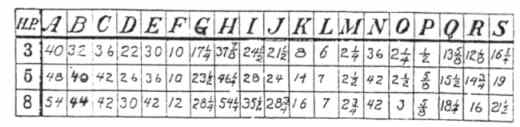 H.P. A B C D E F G H I J K L M N O P Q R S
3 40 32 36 22 30 10 17¼ 37⅞ 24½ 21½ 8 6 2¼ 36 2¼ ½ 13⅝ 12⅛ 16¼
5 48 40 42 26 36 10 23½ 46¼ 28 24 14 7 2½ 42 2½ ⅝ 15½ 14¾ 19
8 54 44 42 30 42 12 28¼ 54½ 35½ 28¾ 16 7 2¾ 42 3 ⅝ 18¼ 16 21½